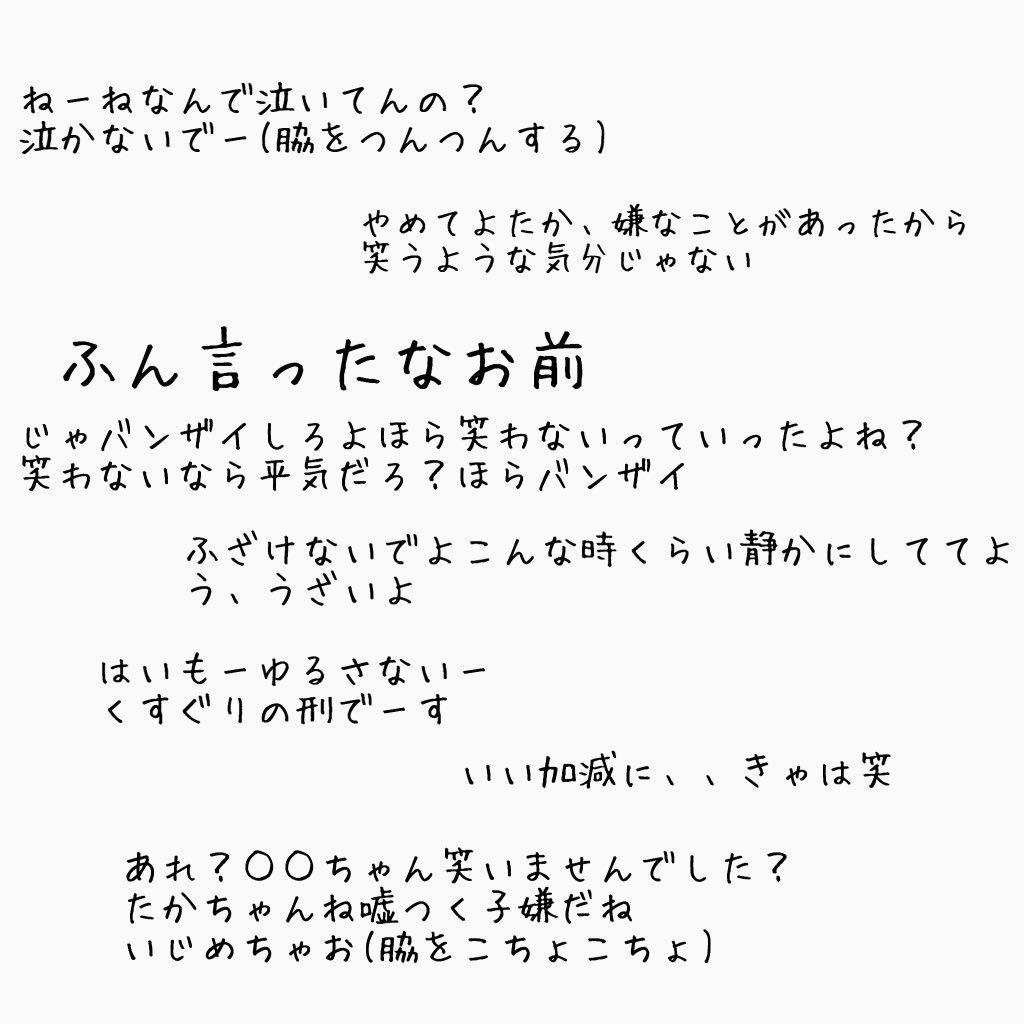 ねーねなんで泣いてんの？
泣かないでー(脇をつんつんする)
やめてよたか、嫌なことがあったから
笑うような気分じゃない
ふん言ったなお前
じゃバンザイしろよほら笑わないっていったよね？
笑わないなら平気だろ？ほらバンザイ
ふざけないでよこんな時くらい静かにしててよ
う、うざいよ
はいもーゆるさないー
くすぐりの刑でーす
いい加減に、、きゃは笑
あれ？〇〇ちゃん笑いませんでした？
たかちゃんね嘘つく子嫌だね
いじめちゃお(脇をこちょこちょ)